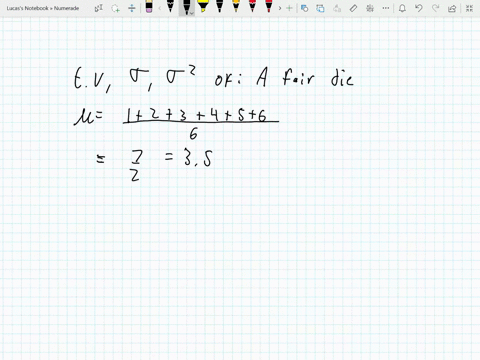 Lucas's Notebook » Numerade
E.V, σ, σ² of: A fair die
μ= 1+2+3+4+5+6
6
= 7 = 3.5
2